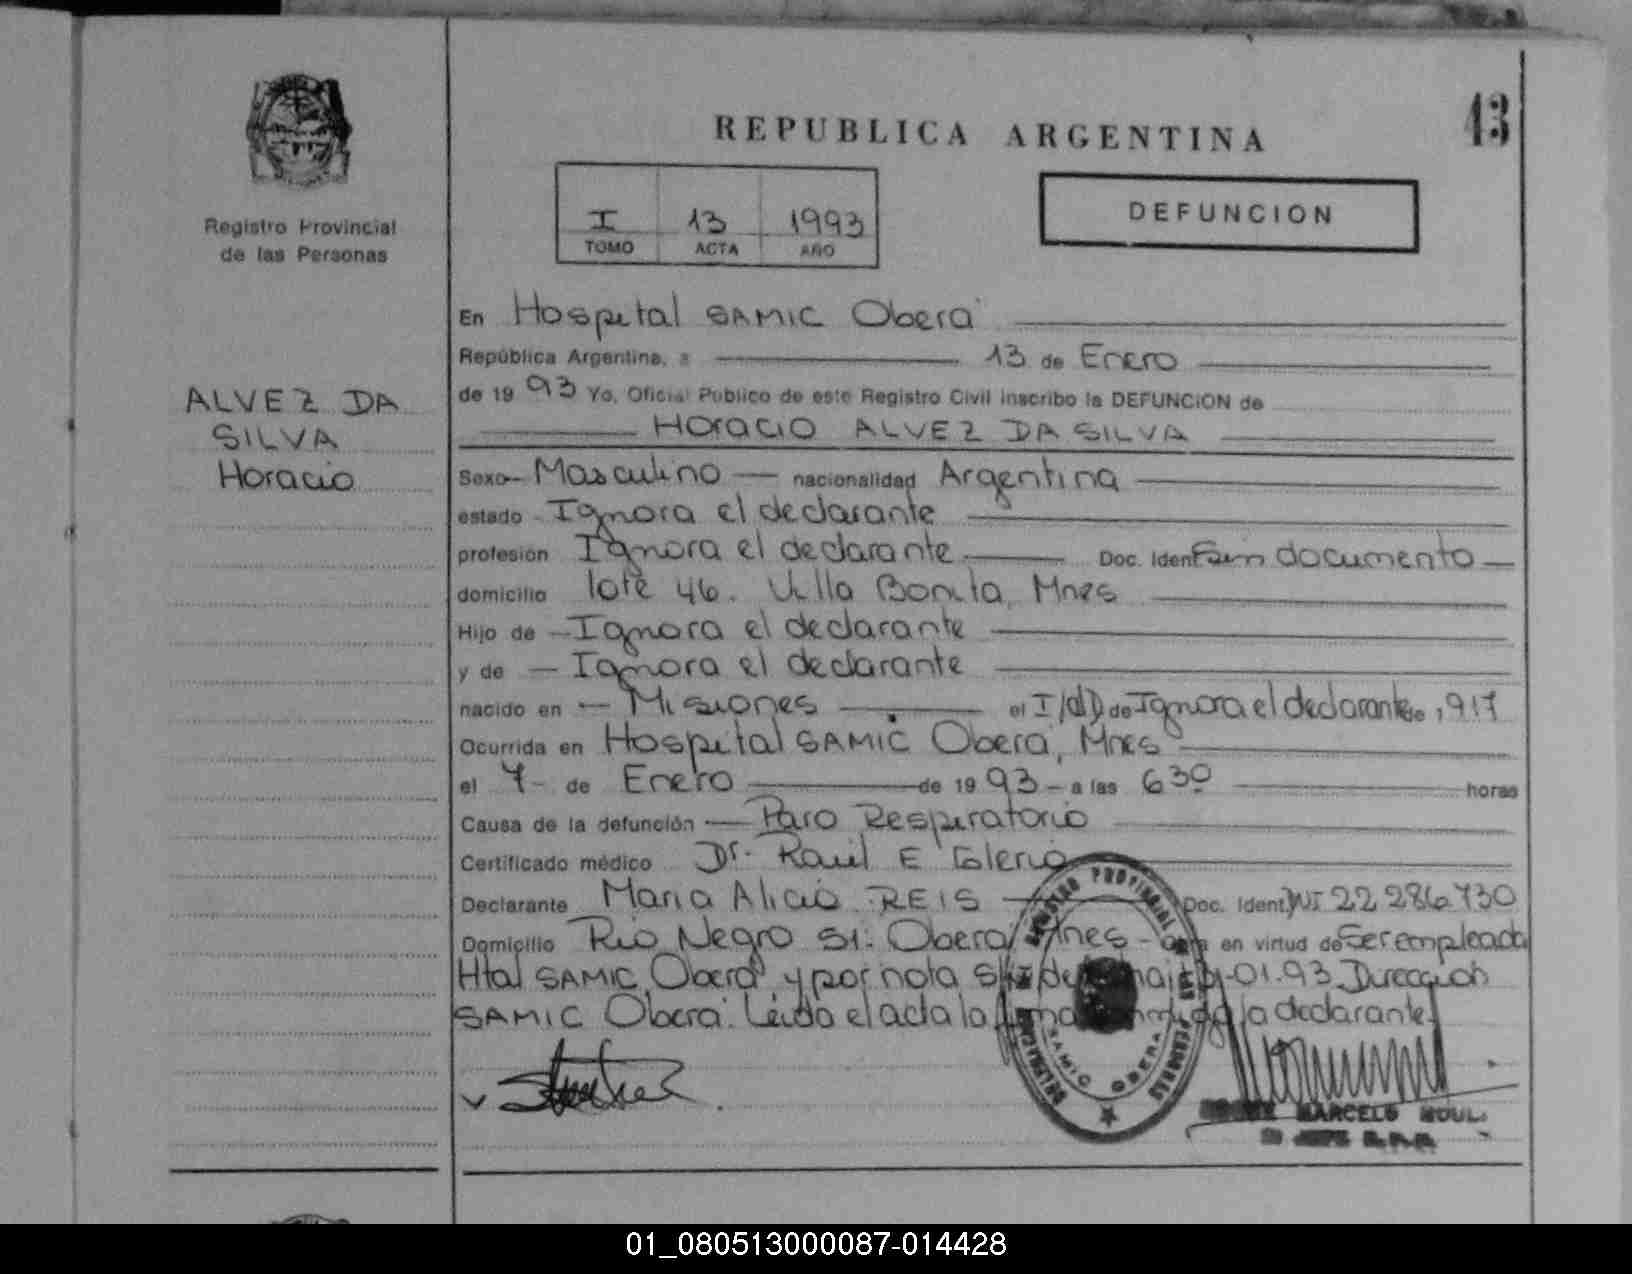 13
REPUBLICA ARGENTINA
I 13 1993
TOMO ACTA AÑO
DEFUNCION
Registro Provincial
de las Personas
ALVEZ DA
SILVA
Horacio
En Hospital SAMIC Oberá
República Argentina, a 13 de Enero
de 1993 Yo, Oficial Público de este Registro Civil inscribo la DEFUNCION de
Horacio ALVEZ DA SILVA
Sexo Masculino nacionalidad Argentina
estado Ignora el declarante
profesión Ignora el declarante Doc. Ident. Sin documento
domicilio lote 46. Villa Bonita, Mnes
Hijo de Ignora el declarante
y de Ignora el declarante
nacido en Misiones el I/d/D de Ignora el declarante de 1917
Ocurrida en Hospital SAMIC Oberá, Mnes
el 7 de Enero de 1993 a las 630 horas
Causa de la defunción Paro Respiratorio
Certificado médico Dr. Raúl E
Declarante Maria Alicia REIS Doc. Ident. 22 286 730
Domicilio Rio Negro Oberá Mnes en virtud de Ser empleada
Htal SAMIC Oberá y por nota 01.93 Dirección
SAMIC Oberá. Leida el acta la la declarante.
REGISTRO PROVINCIAL DE LAS PERSONAS
SAMIC OBERA
MARCELO
01_080513000087-014428